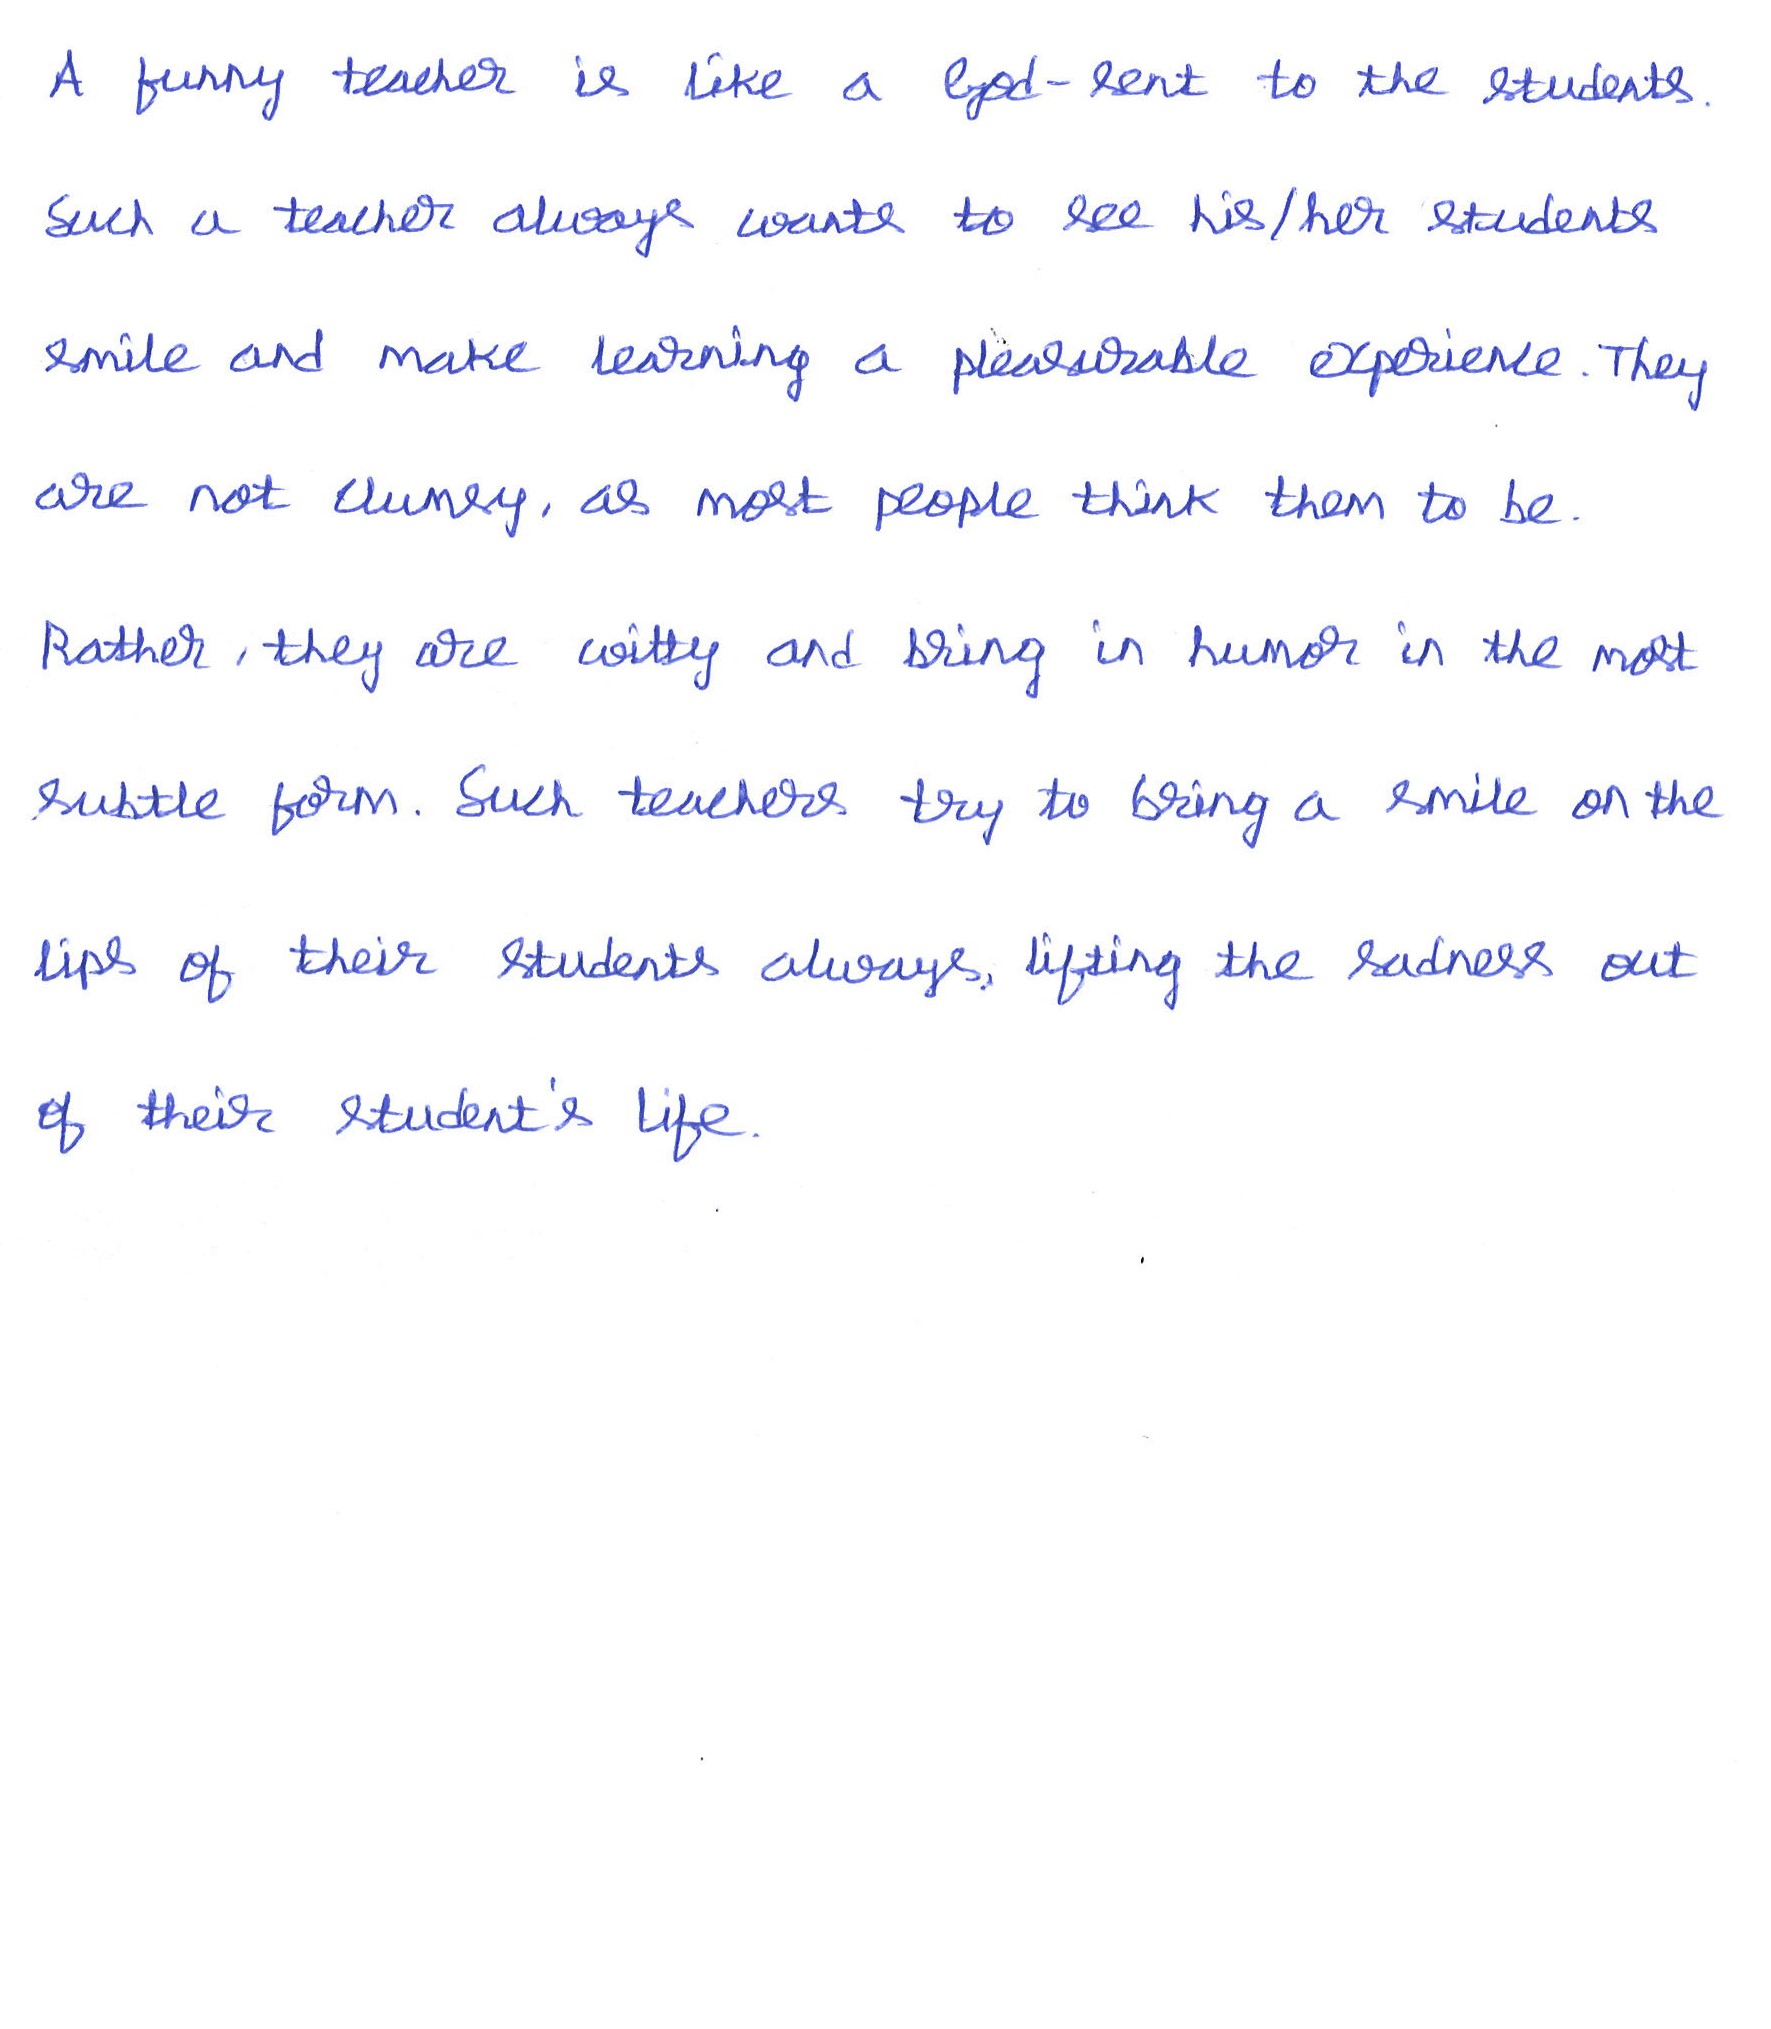 A funny teacher is like a God-sent to the students.
Such a teacher always wants to see his/her students
smile and make learning a pleasurable experience. They
are not clumsy, as most people think them to be.
Rather, they are witty and bring in humor in the most
subtle form. Such teachers try to bring a smile on the
lips of their students always, lifting the sadness out
of their student's life.